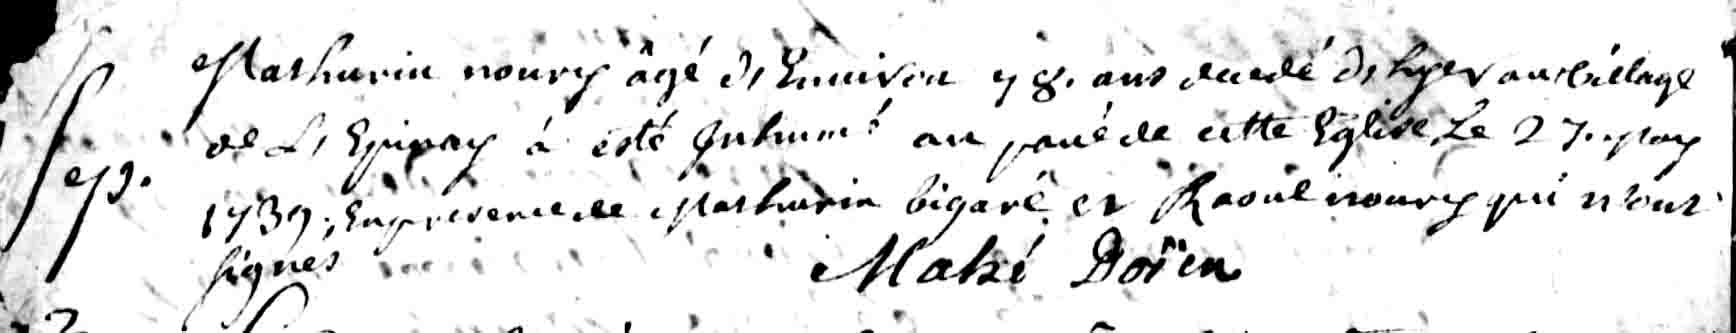 Mathurin noury âgé de Enuiron 78. ans decedé de hyer au village
Sep. de L'Epinay à esté Inhumé au pavé de cette Eglise Le 27. may
1739, En presence de Mathurin bigaré et Raoul noury qui n'ont
signés Mahé Doïen